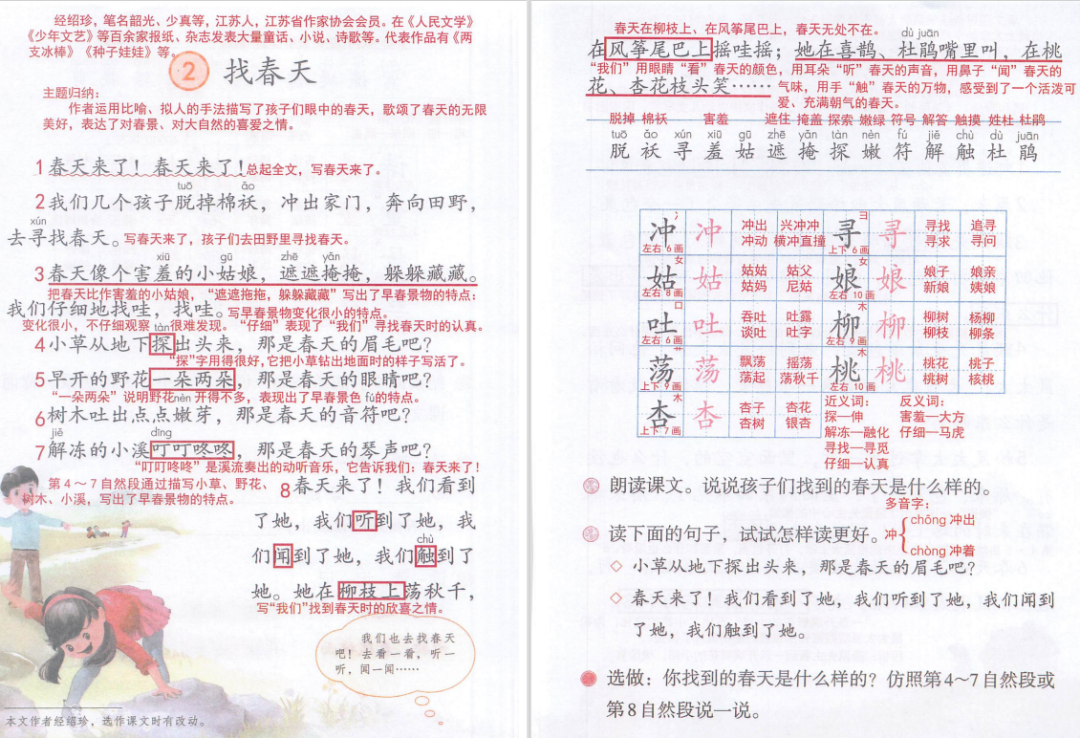 经绍珍，笔名韶光、少真等，江苏人，江苏省作家协会会员。在《人民文学》
《少年文艺》等百余家报纸、杂志发表大量童话、小说、诗歌等。代表作品有《两
支冰棒》《种子娃娃》等。
2 找春天
主题归纳：
作者运用比喻、拟人的手法描写了孩子们眼中的春天，歌颂了春天的无限
美好，表达了对春景、对大自然的喜爱之情。
1 春天来了！春天来了！总起全文，写春天来了。
tuō ǎo
2 我们几个孩子脱掉棉袄，冲出家门，奔向田野，
xún
去寻找春天。写春天来了，孩子们去田野里寻找春天。
xiū gū zhē yǎn
3 春天像个害羞的小姑娘，遮遮掩掩，躲躲藏藏。
把春天比作害羞的小姑娘，“遮遮拖拖，躲躲藏藏”写出了早春景物的特点：
我们仔细地找哇，找哇。写早春景物变化很小的特点。
变化很小，不仔细观察 很难发现。“仔细”表现了“我们”寻找春天时的认真。
tàn
4 小草从地下探出头来，那是春天的眉毛吧？
“探”字用得很好，它把小草钻出地面时的样子写活了。
5 早开的野花一朵两朵，那是春天的眼睛吧？
“一朵两朵”说明野花 开得不多，表现出了早春景色 的特点。
nèn fú
6 树木吐出点点嫩芽，那是春天的音符吧？
jiě dīng
7 解冻的小溪叮叮咚咚，那是春天的琴声吧？
“叮叮咚咚”是溪流奏出的动听音乐，它告诉我们：春天来了！
第４～７自然段通过描写小草、野花、
树木、小溪，写出了早春景物的特点。
8 春天来了！我们看到
了她，我们听到了她，我
chù
们闻到了她，我们触到了
她。她在柳枝上荡秋千，
写“我们”找到春天时的欣喜之情。
我们也去找春天
吧！去看一看，听一
听，闻一闻……
本文作者经绍珍，选作课文时有改动。
春天在柳枝上、在风筝尾巴上，春天无处不在。
dù juān
在风筝尾巴上摇哇摇；她在喜鹊、杜鹃嘴里叫，在桃
“我们”用眼睛“看”春天的颜色，用耳朵“听”春天的声音，用鼻子“闻”春天的
花、杏花枝头笑……
气味，用手“触”春天的万物，感受到了一个活泼可
爱、充满朝气的春天。
脱掉 棉袄 害羞 遮住 掩盖 探索 嫩绿 符号 解答 触摸 姓杜 杜鹃
tuō ǎo xún xiū gū zhē yǎn tàn nèn fú jiě chù dù juān
脱 袄 寻 羞 姑 遮 掩 探 嫩 符 解 触 杜 鹃
冲 冲 冲出 兴冲冲 寻 寻 寻找 追寻
冲动 横冲直撞 寻求 寻问
冫 左右 6画 彐 上下 6画
姑 姑 姑姑 姑父 娘 娘 娘子 娘亲
姑妈 尼姑 新娘 姨娘
女 左右 8画 女 左右 10画
吐 吐 吞吐 吐露 柳 柳 柳树 杨柳
谈吐 吐字 柳枝 柳条
口 左右 6画 木 左右 9画
荡 荡 飘荡 摇荡 桃 桃 桃花 桃子
荡起 荡秋千 桃树 核桃
艹 上下 9画 木 左右 10画
杏 杏 杏子 杏花
杏树 银杏
木 上下 7画
近义词： 反义词：
探—伸 害羞—大方
解冻—融化 仔细—马虎
寻找—寻觅
仔细—认真
朗读课文。说说孩子们找到的春天是什么样的。
多音字：
冲 chōng 冲出
chòng 冲着
读下面的句子，试试怎样读更好。
◇ 小草从地下探出头来，那是春天的眉毛吧？
◇ 春天来了！我们看到了她，我们听到了她，我们闻到
了她，我们触到了她。
选做：你找到的春天是什么样的？仿照第4～7自然段或
第8自然段说一说。